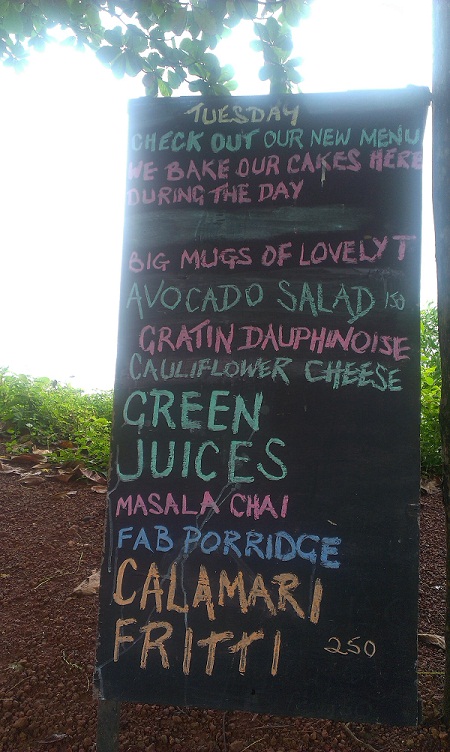 TUESDAY
CHECK OUT OUR NEW MENU
WE BAKE OUR CAKES HERE
DURING THE DAY
BIG MUGS OF LOVELY T
AVOCADO SALAD 150
GRATIN DAUPHINOISE
CAULIFLOWER CHEESE
GREEN
JUICES
MASALA CHAI
FAB PORRIDGE
CALAMARI
FRITTI 250